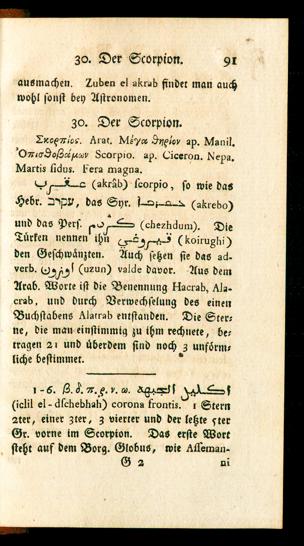 30. Der Scorpion. 91
ausmachen. Zuben el akrab findet man auch
wohl sonst bey Astronomen.
30. Der Scorpion.
Σκορπίος. Arat. Μέγα θηρίον ap. Manil.
Ὀπισθοβάμων Scorpio. ap. Ciceron. Nepa.
Martis sidus. Fera magna.
عـقـرب (akrâb) scorpio, so wie das
Hebr. עקרב, das Syr. (akrebo)
und das Pers. كژدم (chezhdum). Die
Türken nennen ihn قيروغي (koirughi)
den Geschwänzten. Auch setzen sie das ad-
verb. اوزون (uzun) valde davor. Aus dem
Arab. Worte ist die Benennung Hacrab, Ala-
crab, und durch Verwechselung des einen
Buchstabens Alatrab entstanden. Die Ster-
ne, die man einstimmig zu ihm rechnete, be-
tragen 21 und überdem sind noch 3 unförm-
liche bestimmet.
1-6. β. δ. π. ρ. ν. ω. اكليل الجبهه
(iclil el-dschebhah) corona frontis. 1 Stern
2ter, einer 3ter, 3 vierter und der letzte 5ter
Gr. vorne im Scorpion. Das erste Wort
steht auf dem Borg. Globus, wie Asseman-
G 2 ni